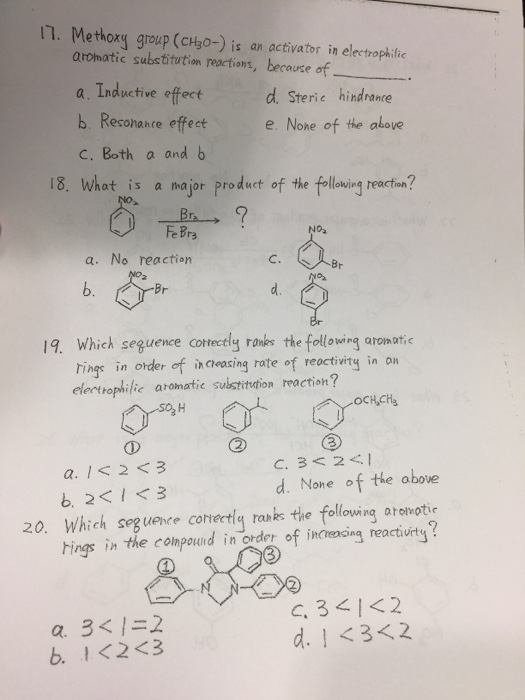 17. Methoxy group (CH3O-) is an activator in electrophilic
aromatic substitution reactions, because of ______.
a. Inductive effect
d. Steric hindrance
b. Resonance effect
e. None of the above
c. Both a and b
18. What is a major product of the following reaction?
NO2
Br2
FeBr3
?
a. No reaction
c.
NO2
Br
b.
NO2
Br
d.
NO2
Br
19. Which sequence correctly ranks the following aromatic
rings in order of increasing rate of reactivity in an
electrophilic aromatic substitution reaction?
SO3H
OCH2CH3
① ② ③
a. 1 < 2 < 3
c. 3 < 2 < 1
b. 2 < 1 < 3
d. None of the above
20. Which sequence correctly ranks the following aromatic
rings in the compound in order of increasing reactivity?
① ③
O
N N ②
a. 3 < 1 = 2
c. 3 < 1 < 2
b. 1 < 2 < 3
d. 1 < 3 < 2